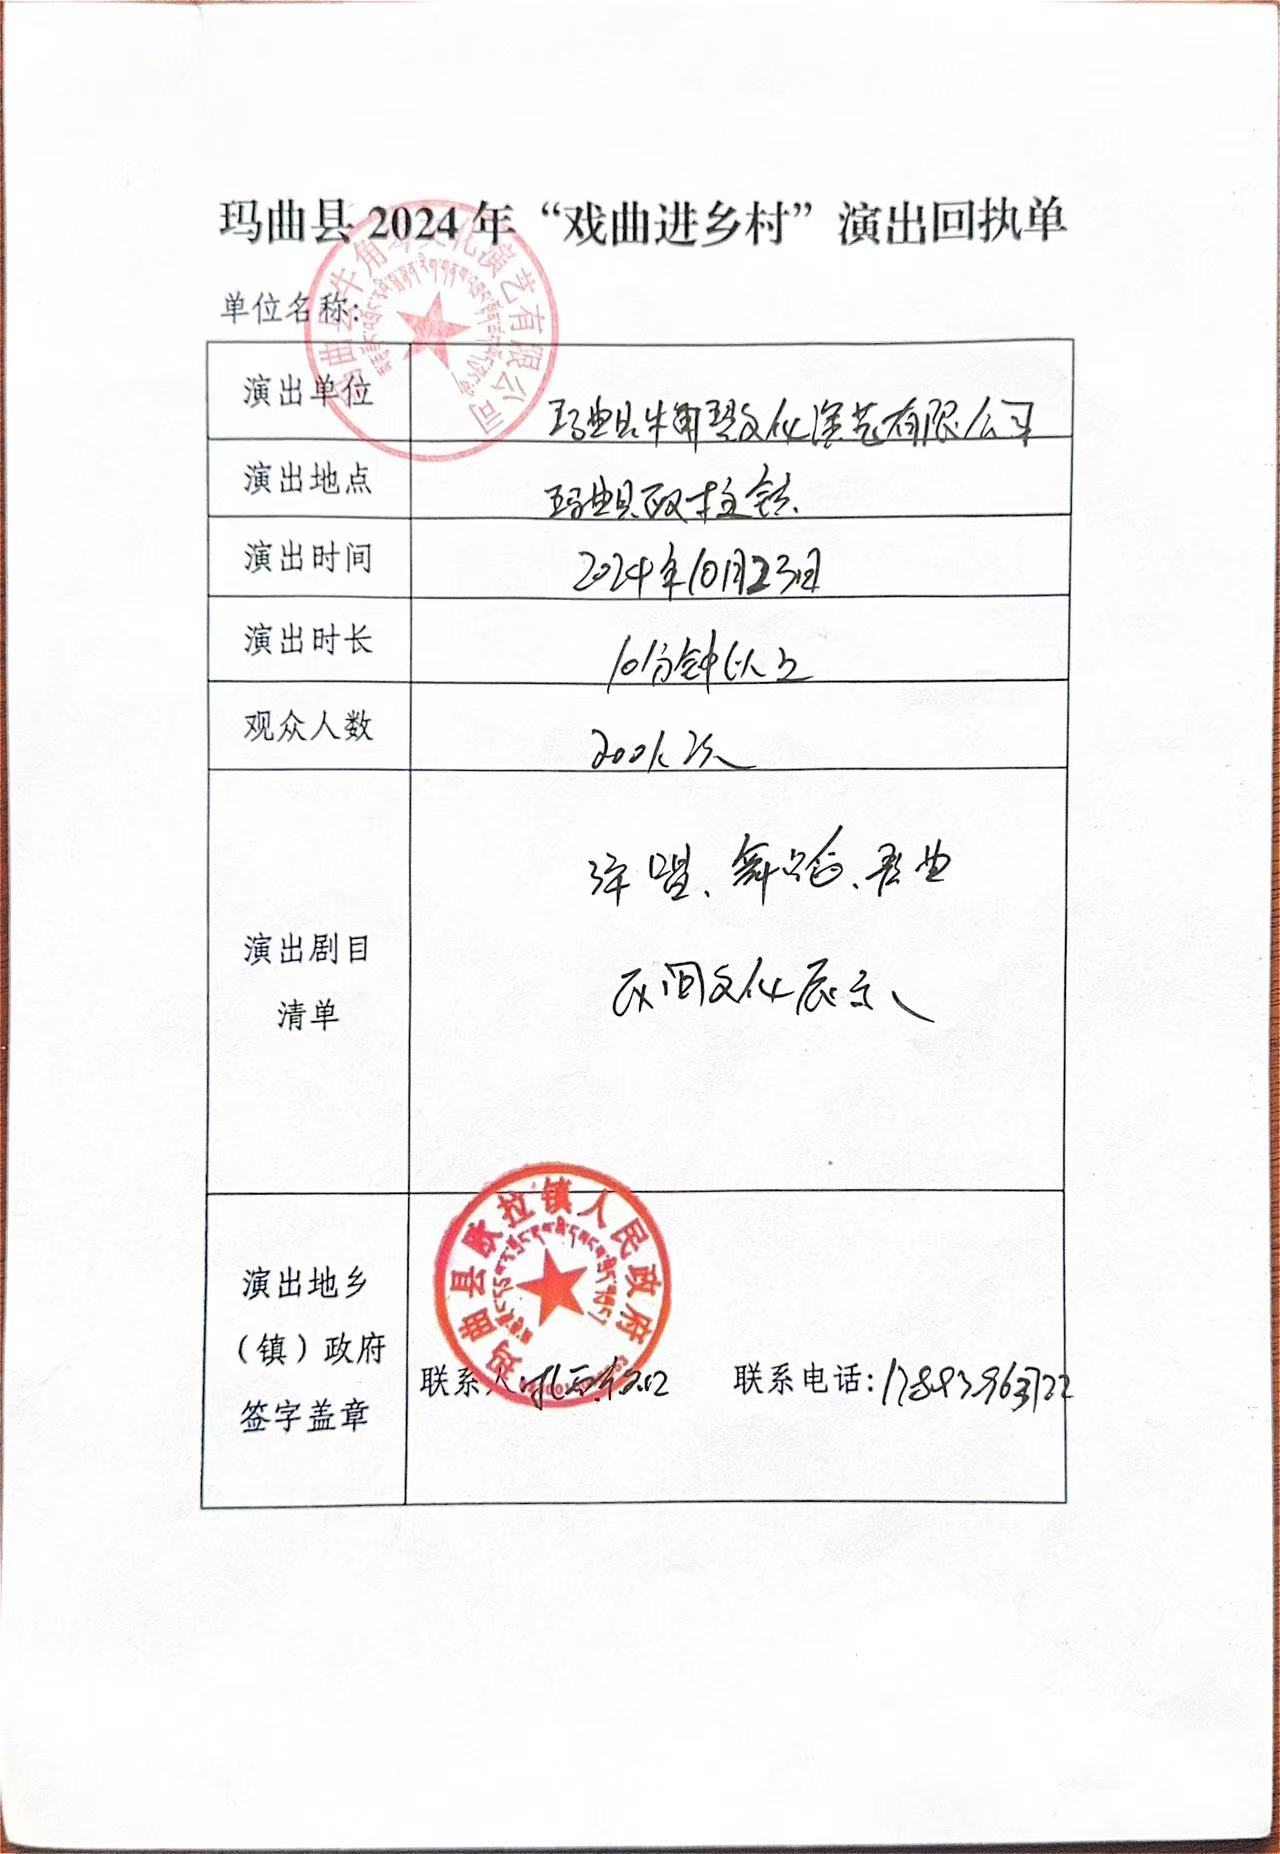 玛曲县 2024 年“戏曲进乡村”演出回执单
单位名称:
演出单位
玛曲县牛角琴文化演艺有限公司
演出地点
玛曲县欧拉镇
演出时间
2024年10月23日
演出时长
101分钟以上
观众人数
200人次
演出剧目
清单
弹唱、舞蹈、琴曲
民间文化展示
演出地乡
（镇）政府
签字盖章
联系人:
联系电话:17893963722
玛曲县牛角琴文化演艺有限公司
玛曲县欧拉镇人民政府